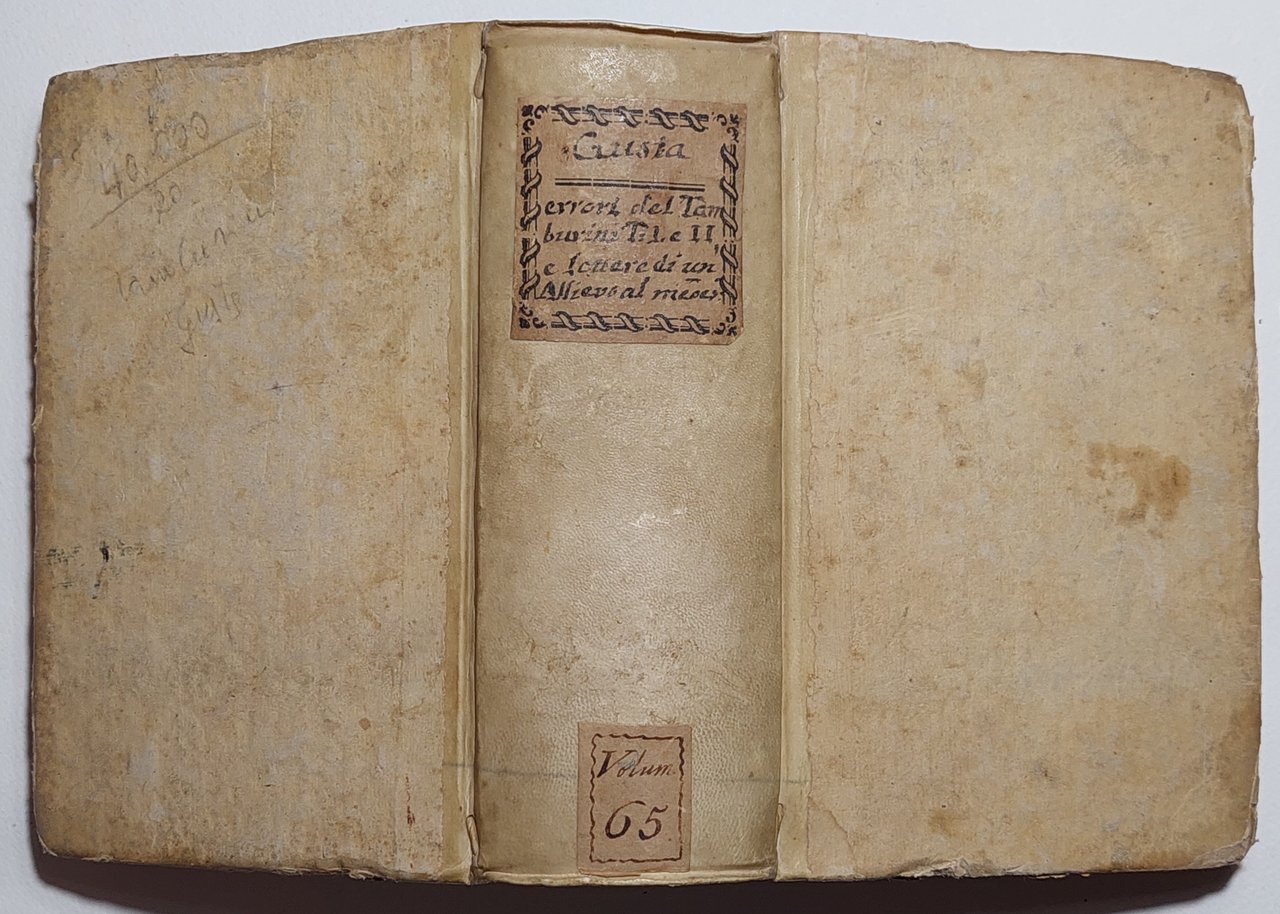 40.000
20
Gusta
errori del Tam
burini T. I. e II,
e lettere di un
Allievo al medes.
Volum
65